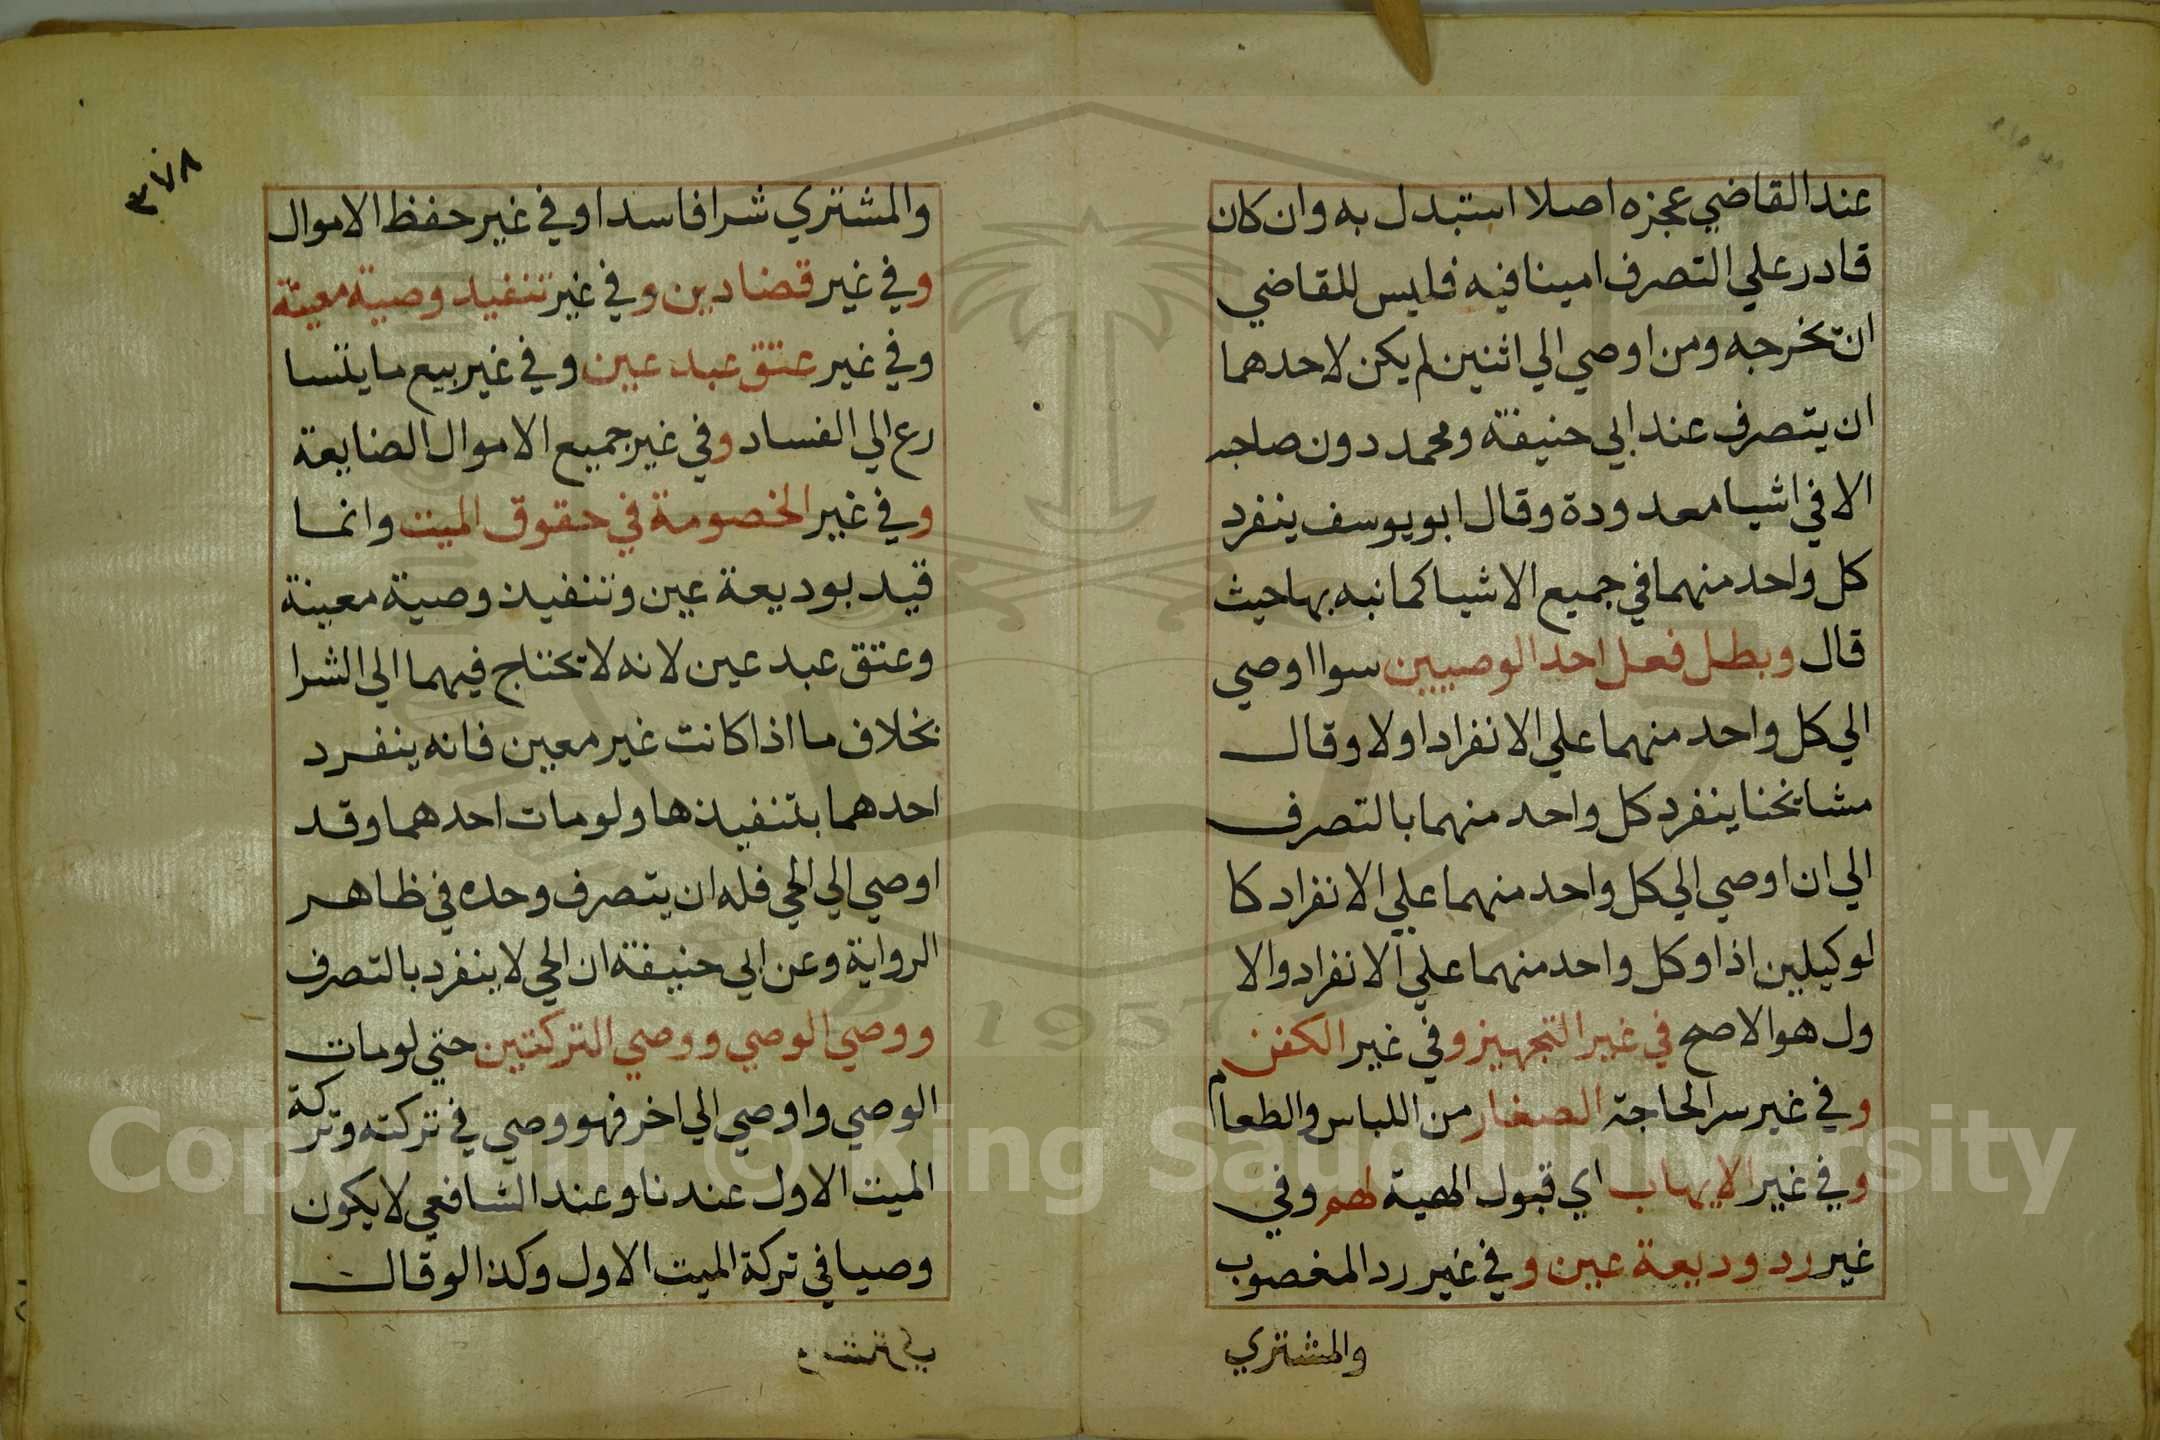 عند القاضي عجزه اصلا استبدل به وان كان
قادر علي التصرف امينا فيه فليس للقاضي
ان تخرجه ومن اوصي الي اثنين لم يكن لاحدهما
ان يتصرف عند ابي حنيفة ومحمد دون صاحبه
الا في اشيا معدودة وقال ابو يوسف ينفرد
كل واحد منهما في جميع الاشيا كما نبه بها حيث
قال وبطل فعل احد الوصيين سوا اوصي
الي كل واحد منهما علي الانفراد اولا وقال
مشايخنا ينفرد كل واحد منهما بالتصرف
الي ان اوصي الي كل واحد منهما علي الانفراد كا
لوكيلين اذا وكل واحد منهما علي الانفراد والا
ول هو الاصح في غير التجهيز وفي غير الكفن
وفي غير سر الحاجة الصغار من اللباس والطعام
وفي غير الايهاب اي قبول الهبة لهم وفي
غير رد وديعة عين وفي غير رد المغصوب
والمشتري
٣٧٨
والمشتري شرا فاسدا وفي غير حفظ الاموال
وفي غير قضا دين وفي غير تنفيد وصية معينة
وفي غير عتق عبد عين وفي غير بيع ما يتسا
رع الي الفساد وفي غير جميع الاموال الضايعة
وفي غير الخصومة في حقوق الميت وانما
قيد بوديعة عين وتنفيذ وصية معينة
وعتق عبد عين لانه لا تحتاج فيهما الي الشرا
بخلاف ما اذا كانت غير معين فانه ينفرد
احدهما بتنفيذها ولو مات احدهما وقد
اوصي الي الحي فله ان يتصرف وحده في ظاهر
الرواية وعن ابي حنيفة ان الحي لا ينفرد بالتصرف
ووصي الوصي ووصي التركتين حتي لو مات
الوصي واوصي الي اخر فهو وصي في تركته وتركة
الميت الاول عندنا وعند الشافعي لا يكون
وصيا في تركة الميت الاول وكذا لو قال
Copyright © King Saud University
1957